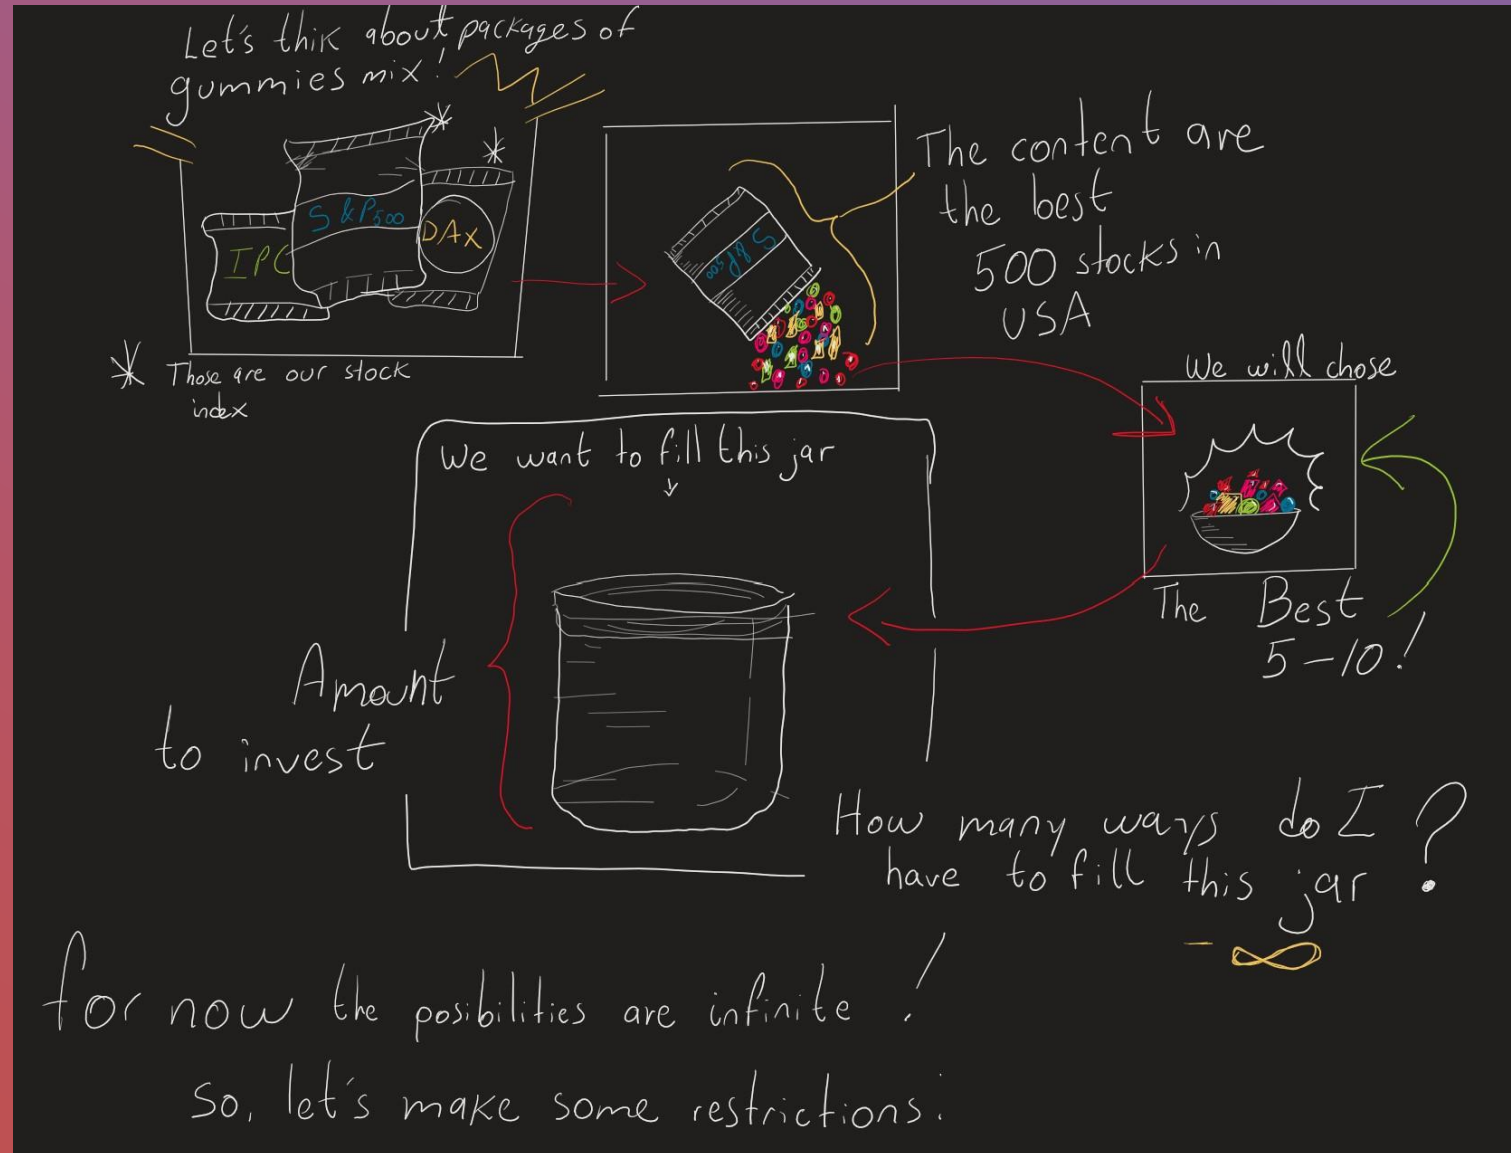 Let's thik about packages of
gummies mix!
IPC
S&P500
DAX
* Those are our stock
index
S&P500
The content are
the best
500 stocks in
USA
We will chose
The Best
5-10!
We want to fill this jar
Amount
to invest
How many ways do I
have to fill this jar?
- ∞
for now the posibilities are infinite!
So, let's make some restrictions: